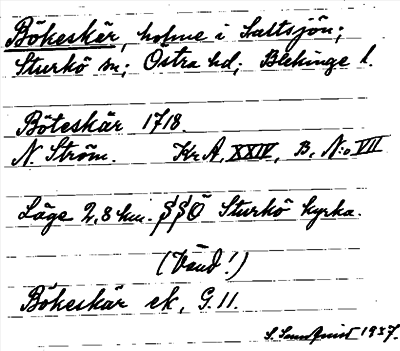 Bökeskär, holme i Saltsjön;
Sturkö sn; Östra hd; Blekinge l.
Böteskär 1718.
N. Ström. Kr. A, XXIV, B, N:o VII
Läge 2,8 km. SSÖ Sturkö kyrka.
(Vänd!)
Bökeskär ek, G. 11.
1937.